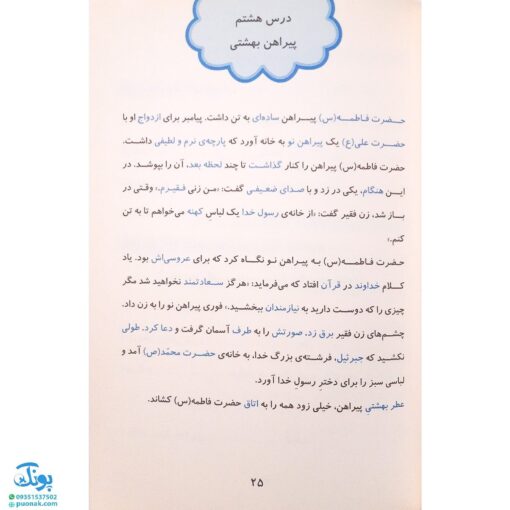 درس هشتم
پیراهن بهشتی
حضرت فاطمه(س) پیراهن ساده‌ای به تن داشت. پیامبر برای ازدواج او با
حضرت علی(ع) یک پیراهن نو به خانه آورد که پارچه‌ی نرم و لطیفی داشت.
حضرت فاطمه(س) پیراهن را کنار گذاشت تا چند لحظه بعد، آن را بپوشد. در
این هنگام، یکی در زد و با صدای ضعیفی گفت: «من زنی فقیرم.» وقتی در
باز شد، زن فقیر گفت: «از خانه‌ی رسول خدا یک لباس کهنه می‌خواهم تا به تن
کنم.»
حضرت فاطمه(س) به پیراهن نو نگاه کرد که برای عروسی‌اش بود. یاد
کلام خداوند در قرآن افتاد که می‌فرماید: «هرگز سعادتمند نخواهید شد مگر
چیزی را که دوست دارید به نیازمندان ببخشید.» فوری پیراهن نو را به زن داد.
چشم‌های زن فقیر برق زد. صورتش را به طرف آسمان گرفت و دعا کرد. طولی
نکشید که جبرئیل، فرشته‌ی بزرگ خدا، به خانه‌ی حضرت محمّد(ص) آمد و
لباسی سبز را برای دختر رسول خدا آورد.
عطر بهشتیِ پیراهن، خیلی زود همه را به اتاق حضرت فاطمه(س) کشاند.
۲۵
پونک
09351537502
puonak.com